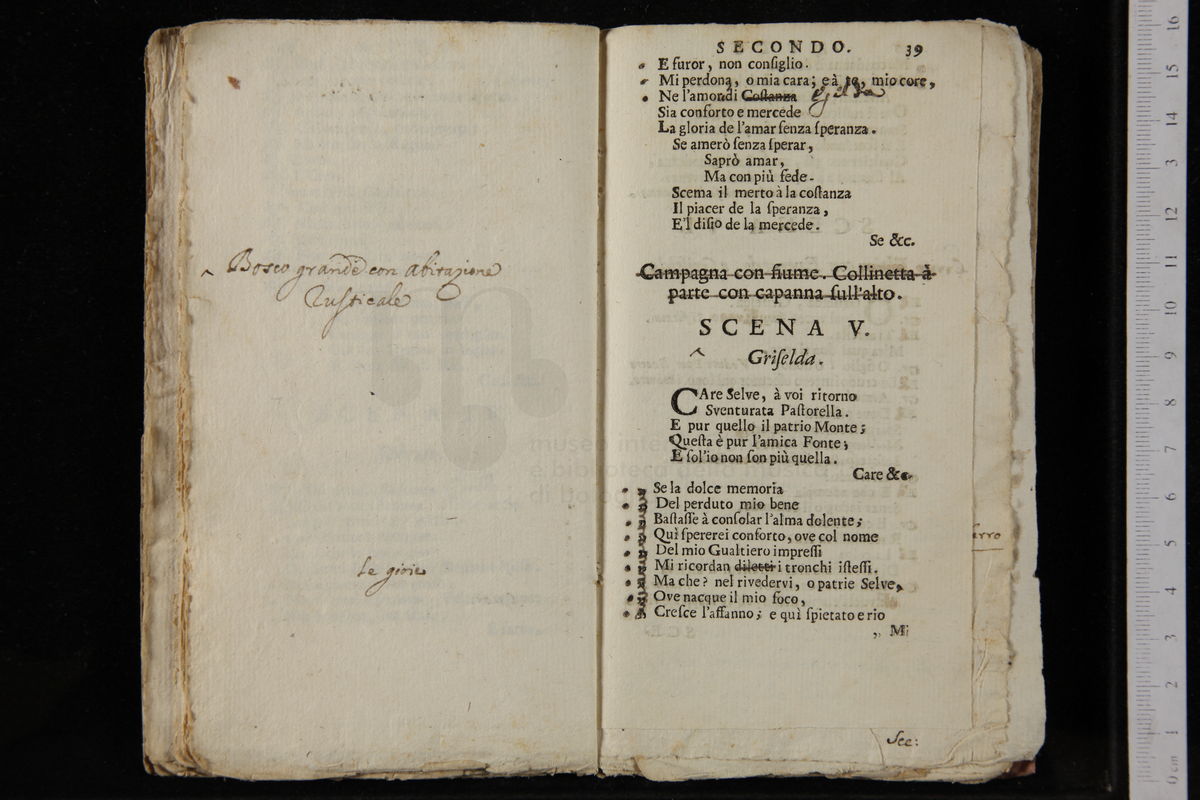 Bosco grande con abitazione
Rusticale
Le gioie
SECONDO. 39
E furor, non consiglio.
Mi perdona, o mia cara; e à te, mio core,
Ne l'amor di Costanza
Sia conforto e mercede
La gloria de l'amar senza speranza.
Se amerò senza sperar,
Saprò amar,
Ma con più fede.
Scema il merto à la costanza
Il piacer de la speranza,
E'l disio de la mercede.
Se &c.
Campagna con fiume. Collinetta à
parte con capanna sull'alto.
SCENA V.
Griselda.
CAre Selve, à voi ritorno
Sventurata Pastorella.
E pur quello il patrio Monte;
Questa è pur l'amica Fonte;
E sol'io non son più quella.
Care &c.
Se la dolce memoria
Del perduto mio bene
Bastasse à consolar l'alma dolente;
Quì spererei conforto, ove col nome
Del mio Gualtiero impressi
Mi ricordan diletti i tronchi istessi.
Ma che? nel rivedervi, o patrie Selve,
Ove nacque il mio foco,
Cresce l'affanno; e quì spietato e rio
,, Mi